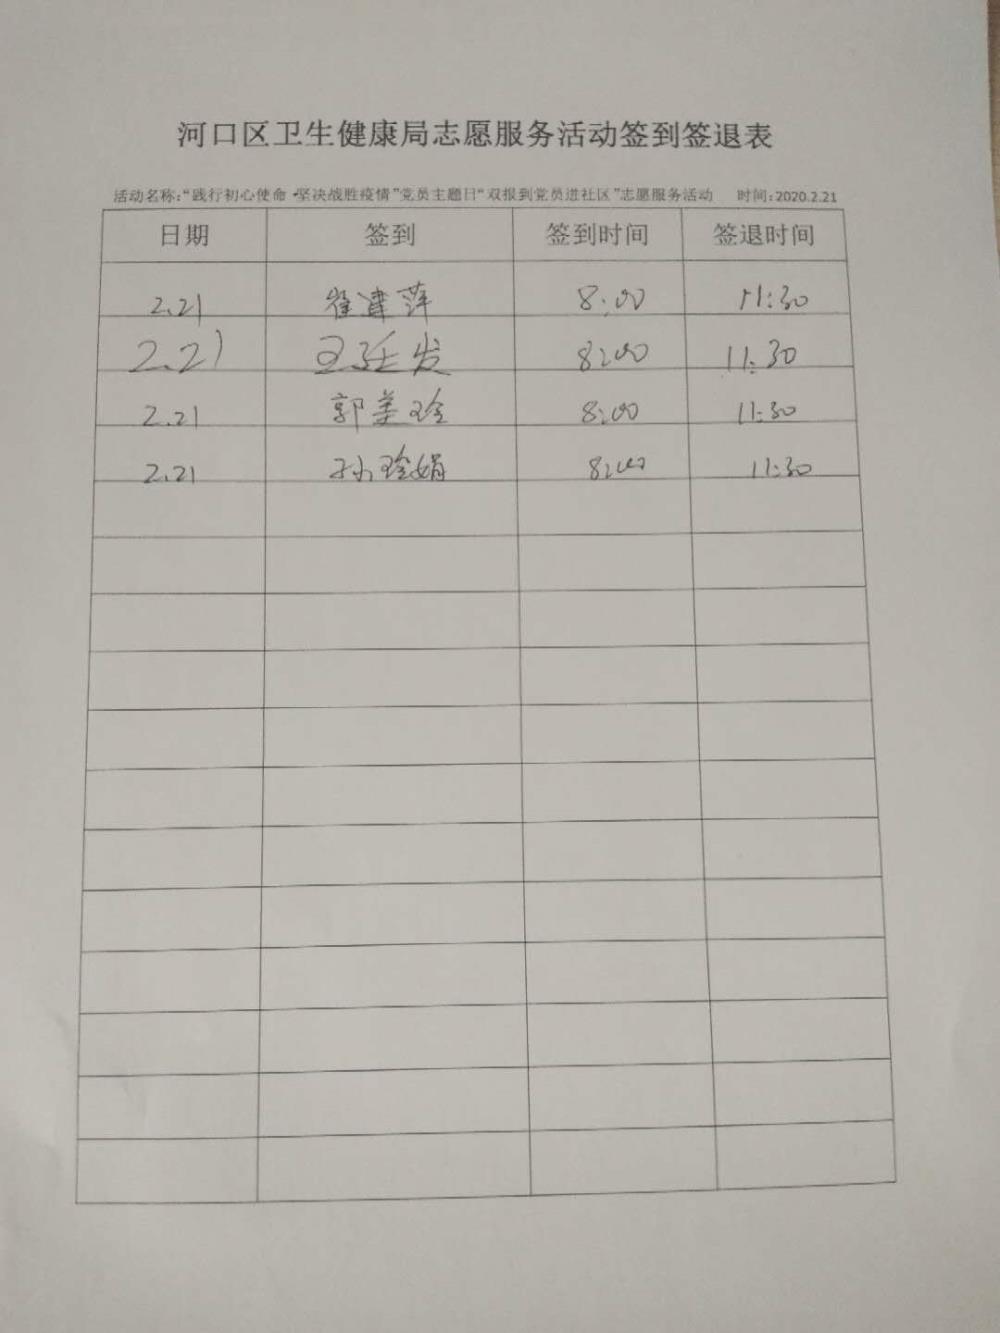 河口区卫生健康局志愿服务活动签到签退表
活动名称：“践行初心使命·坚决战胜疫情”党员主题日“双报到党员进社区”志愿服务活动 时间：2020.2.21
日期 签到 签到时间 签退时间
2.21 崔建萍 8:00 11:30
2.21 王廷发 8:00 11:30
2.21 郭美玲 8:00 11:30
2.21 孙玲娟 8:00 11:30